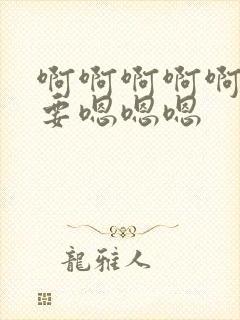 啊啊啊啊啊
要嗯嗯嗯
龍雅人